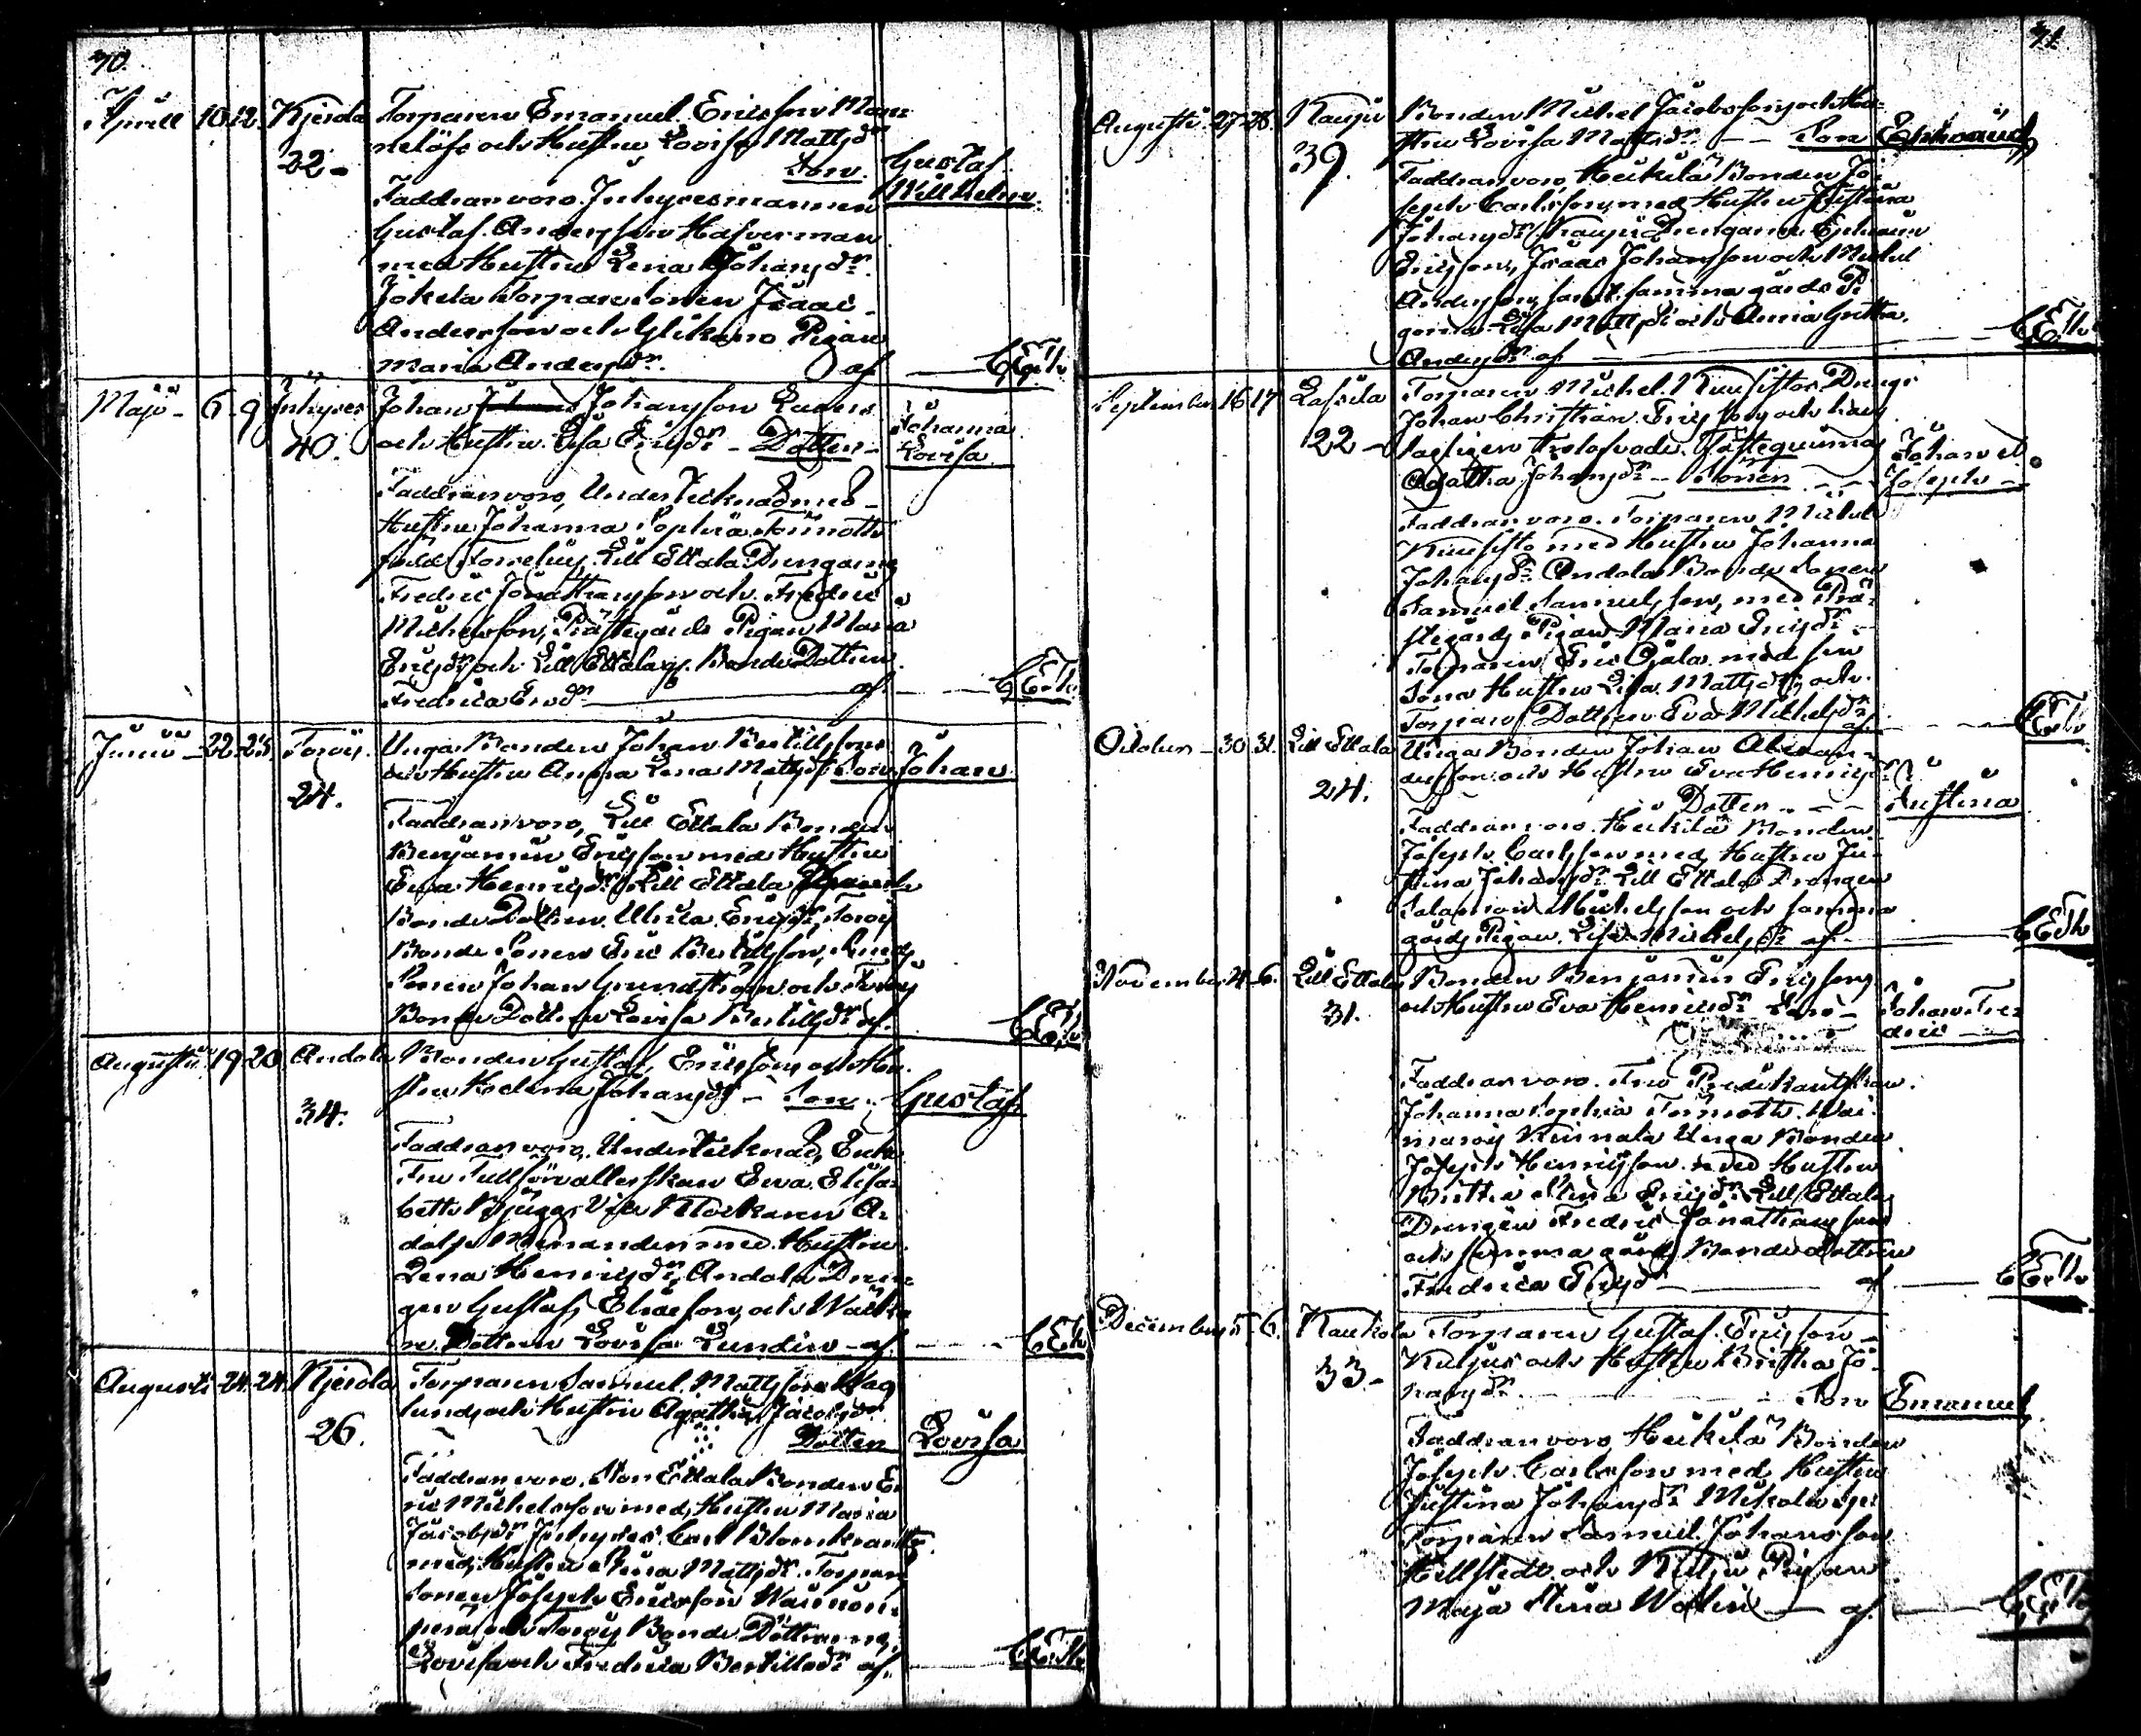 70.
Aprill 10 12. Kjerola Torparen Emanuel Ericsson Man-
nelöf och Hustru Lovisa Mattsdr
32 - Son Gustaf
Wilhelm.
Faddrar voro. Inhyresmannen
Gustaf Andersson Hafverman
med Hustru Lena Johansdr.
Jokela Torpare Sonen Isaac
Andersson och Ylikano Pigan
Maria Andersdr. af
Maji - 6 - 9 Inhyses Johan Johansson
och Hustru Lisa Ericsdr - Dotter - Johanna
40. Lovisa
Faddrar voro, Undertecknad med
Hustru Johanna Sophia
född Lill Ettala Drengarne
Fredric Jonathansson och Fredric
Michelsson, Prästegårds Pigan Maria
Ericsdr och Lill Ettala Bonde Dottren
Fredrica af
Junii - 22. 23. Torois. Unga Bonden Johan Bertillsson
och Hustru Anna Lena Mattsdr Son Johan
24.
Faddrar voro, Lill Ettala Bonden
Benjamin Ericsson med Hustru
Eva Henricsdr Lill Ettala
Bonde Dottren Ulrica Ericsdr, Torois
Bonde Sonen Eric Bertillsson,
Sonen Johan Grundström och Torois
Bonde Dottren Lovisa Bertillsdr af.
Augusti 19. 20. Andola Bonden Gustaf Ericsson och Hu-
stru Helena Johansdr - Son - Gustaf
34.
Faddrar voro, Undertecknad, Enke
Fru Tullförvalterskan Eva Elisa-
beth Vice Klockaren A-
dolph med Hustru
Lena Henricsdr, Andola Dren-
gen Gustaf Eliaesson, och
Dottren Lovisa Lundin - af.
Augusti 24. 24. Kjerola Torparen Samuel Mattsson Wag-
lund och Hustru Agatha Jacobsdr
26. Dotter Lovisa
Faddrar voro, Stor Ettala Bonden E-
ric Michelsson med Hustru Maria
Jacobsdr Inhyses Carl Blomkrantz
med Hustru Stina Mattsdr. Torpare
Sonen Joseph Ericsson Wainion-
perä, och Torois Bonde Döttrarne,
Lovisa och Fredrica Bertillsdr af.
71.
Augusti 27 28. Bonden Michel Jacobsson och Hu-
stru Lovisa Mattsdr - - Son Ephraim
39.
Faddrar voro, Heikilä Bonden Jo-
seph Carlsson med Hustru Justina
Johansdr. Drengarne Ephraim
Ericsson, Isaac Johansson och Michel
Andersson samt samma gårds Pi-
gorna Lisa Mattsdr och Anna Gretha
Andersdr. af
September 16 17 Lassila Torparen Michel Kuusistos Dreng
Johan Christian Ericsson och hans
22 - lagligen trolofvade Fästeqvinna
Agatha Johansdr - Sonen - Johan
Joseph
Faddrar voro. Torparen Michel
Kuusisto med Hustru Johanna
Johansdr Andola Bonde Sonen
Samuel Samuelsson, med Prä-
stegårds Pigan Maria Ericsdr
Torparen Eric Ojala med sin
Sons Hustru Lisa Mattsdr, och
Torpare Dottren Eva Michelsdr
af
October - 30 31. Lill Ettala Unga Bonden Johan Alexan-
dersson och Hustru Eva Henricsdr
24. Dotter - - - Justina
Faddrar voro. Heikilä Bonden
Joseph Carlsson med Hustru Ju-
stina Johansdr Lill Ettala Drengen
Salamon Michelsson och samma
gårds Pigan Lisa Michelsdr af
November 4 - 6. Lill Ettala Bonden Benjamin Ericsson
och Hustru Eva Henricsdr Son - Johan Fre-
31. dric
Faddrar voro. Fru Predikantskan
Johanna Sophia
Unga Bonden
Joseph Henricsson med Hustru
Britha Stina Ericsdr Lill Ettala
Drengen Fredric Jonathansson
och samma gårds Bonde Dottren
Fredrica Ericsdr - af
December 5. 6. Kaukola Torparen Gustaf Ericsson
och Hustru Britha Jo-
33 - hansdr. - - Son Emanuel
Faddrar voro Heikilä Bonden
Joseph Carlsson med Hustru
Justina Johansdr
Torparen Samuel Johansson
Hellstedt och Pigan
Maja Stina Wallin - af.